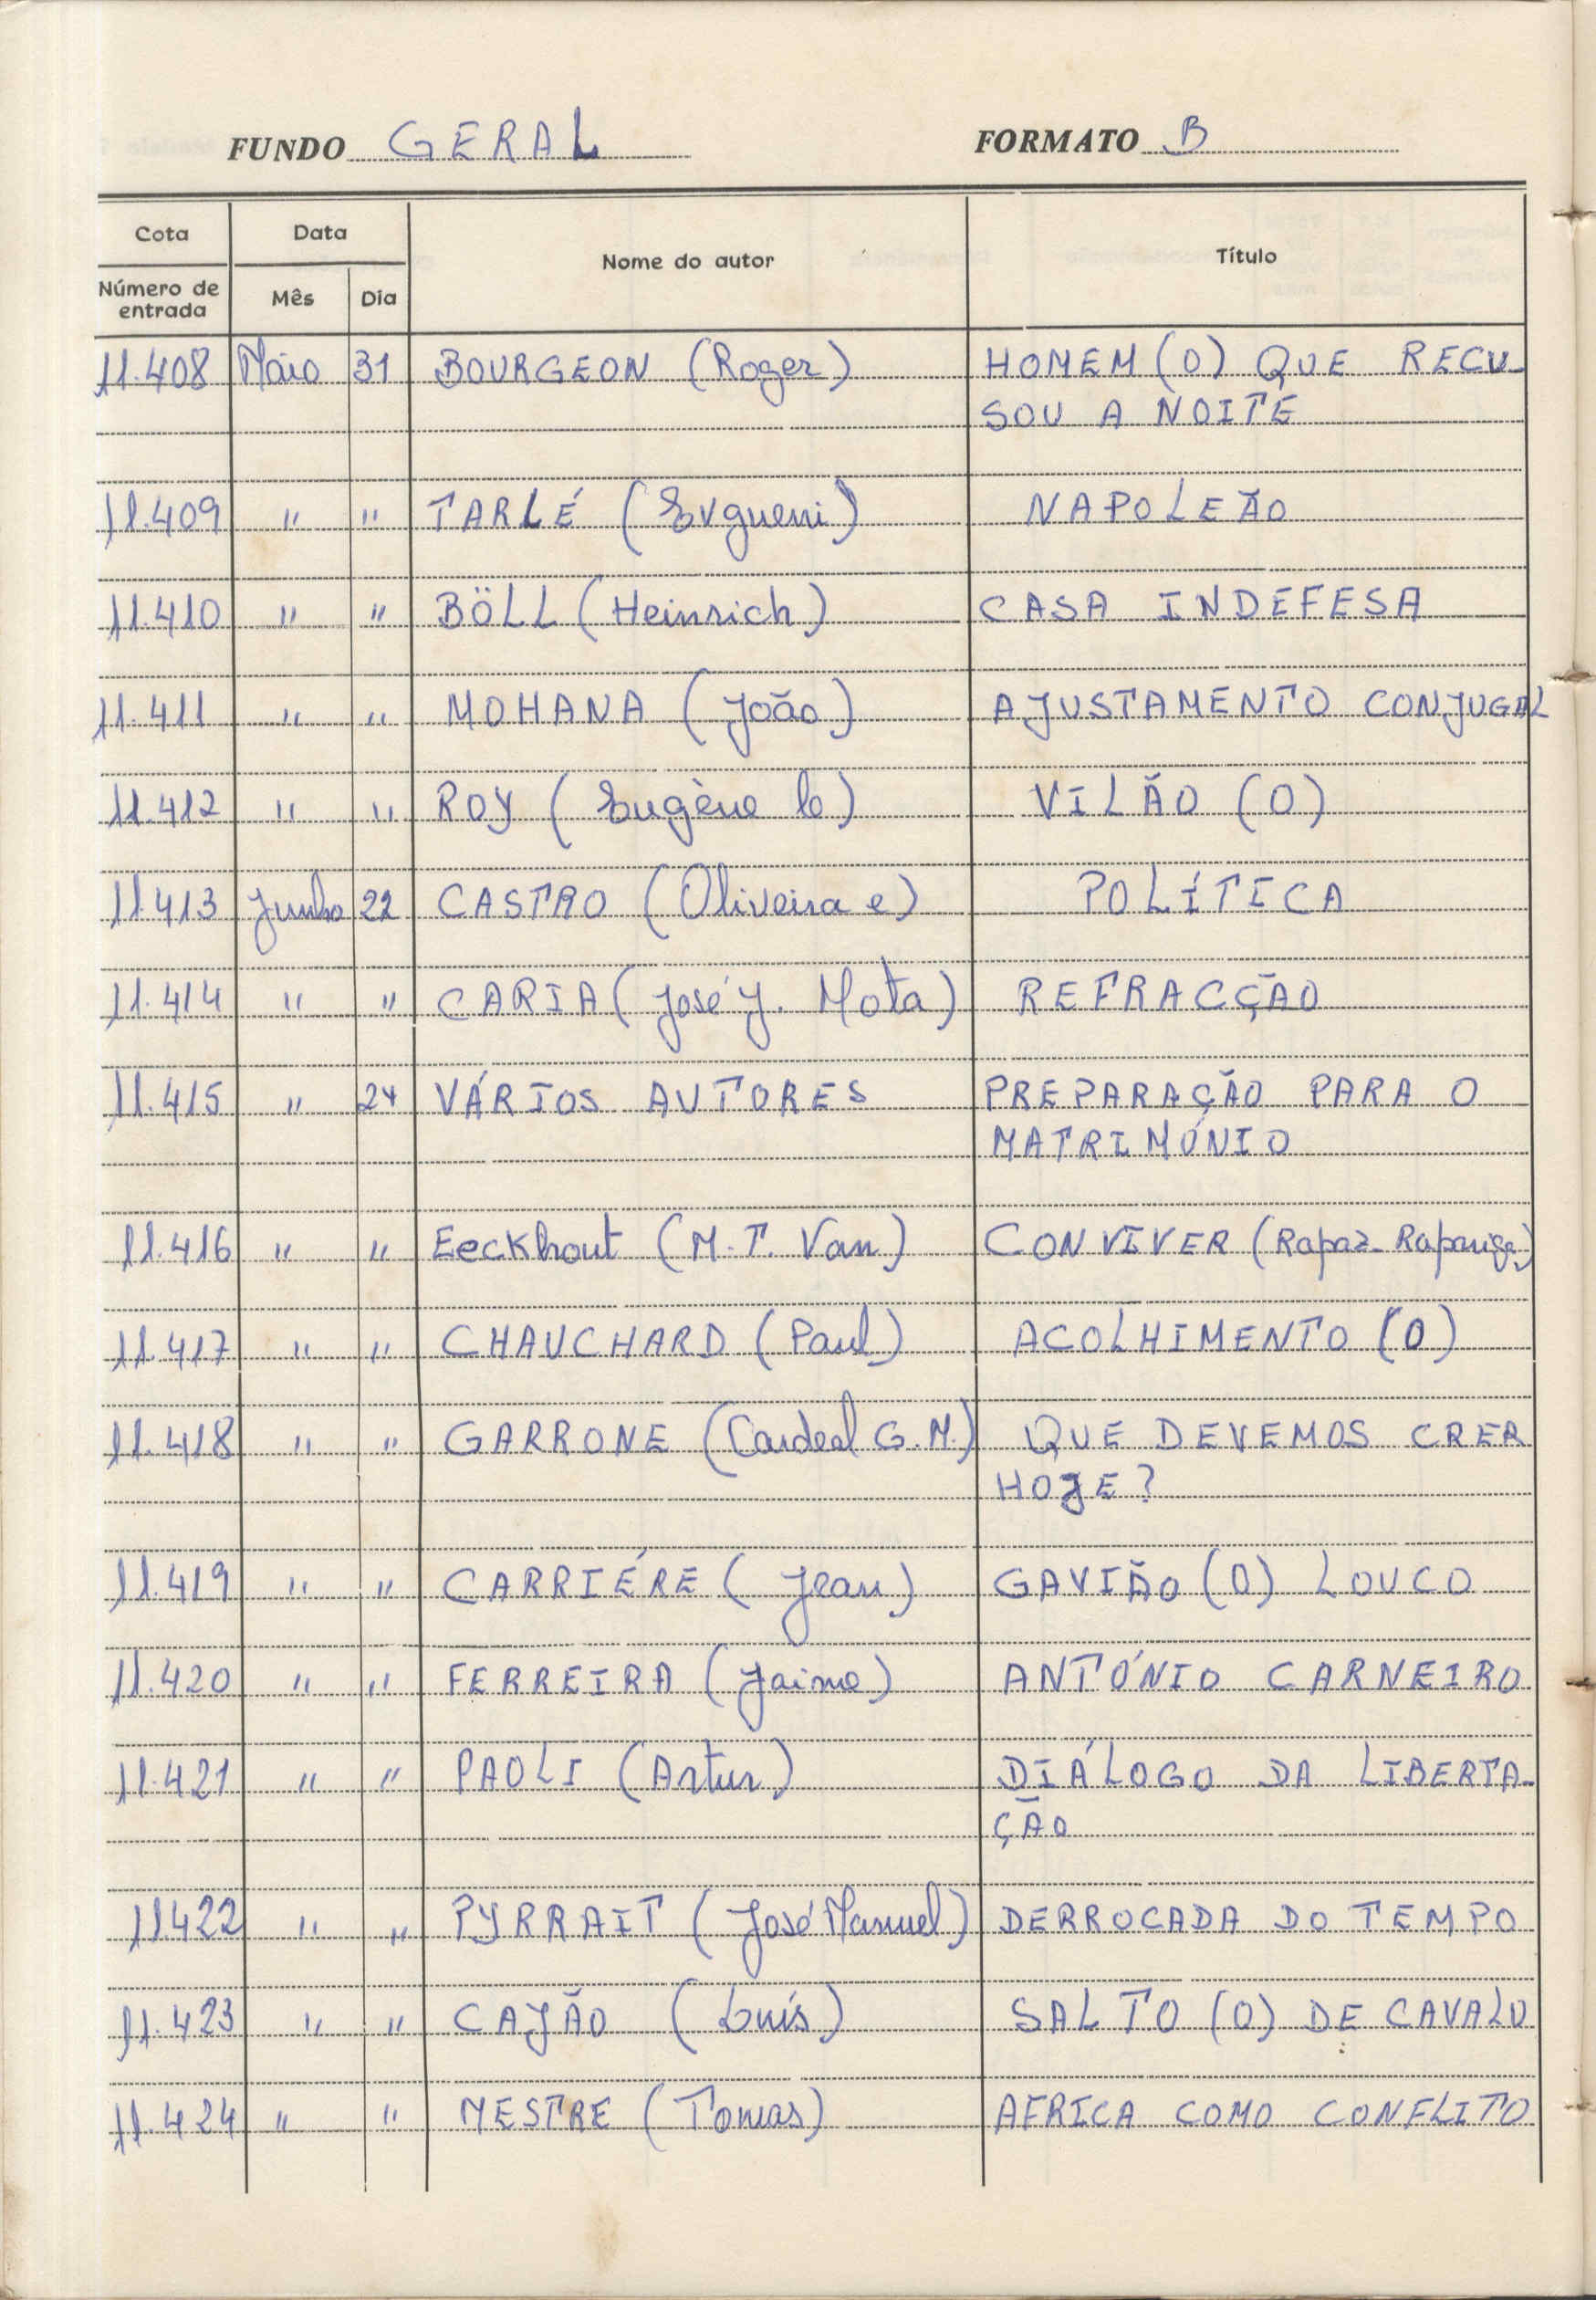 FUNDO GERAL FORMATO B
Cota Data Nome do autor Título
Número de entrada Mês Dia
11.408 Maio 31 BOURGEON (Roger) HOMEM (O) QUE RECU-
SOU A NOITE
11.409 " " TARLÉ (Evgueni) NAPOLEÃO
11.410 " " BÖLL (Heinrich) CASA INDEFESA
11.411 " " MOHANA (João) AJUSTAMENTO CONJUGAL
11.412 " " ROY (Eugène le) VILÃO (O)
11.413 Junho 22 CASTRO (Oliveira e) POLÍTICA
11.414 " " CARIA (José J. Mota) REFRACÇÃO
11.415 " 24 VÁRIOS AUTORES PREPARAÇÃO PARA O
MATRIMÓNIO
11.416 " " Eeckhout (M.T. Van) CONVIVER (Rapaz-Rapariga)
11.417 " " CHAUCHARD (Paul) ACOLHIMENTO (O)
11.418 " " GARRONE (Cardeal G.M.) QUE DEVEMOS CRER
HOJE?
11.419 " " CARRIÉRE (Jean) GAVIÃO (O) LOUCO
11.420 " " FERREIRA (Jaime) ANTÓNIO CARNEIRO
11.421 " " PAOLI (Artur) DIÁLOGO DA LIBERTA-
ÇÃO
11422 " " PYRRAIT (José Manuel) DERROCADA DO TEMPO
11.423 " " CAJÃO (Luís) SALTO (O) DE CAVALO
11.424 " " MESTRE (Tomas) AFRICA COMO CONFLITO